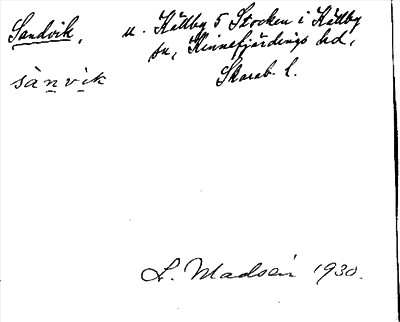 Sandvik, u. Källby 5 Stocken i Källby
sn, Kinnefjärdings hd,
sànvik Skarab. l.
L. Madsén 1930.